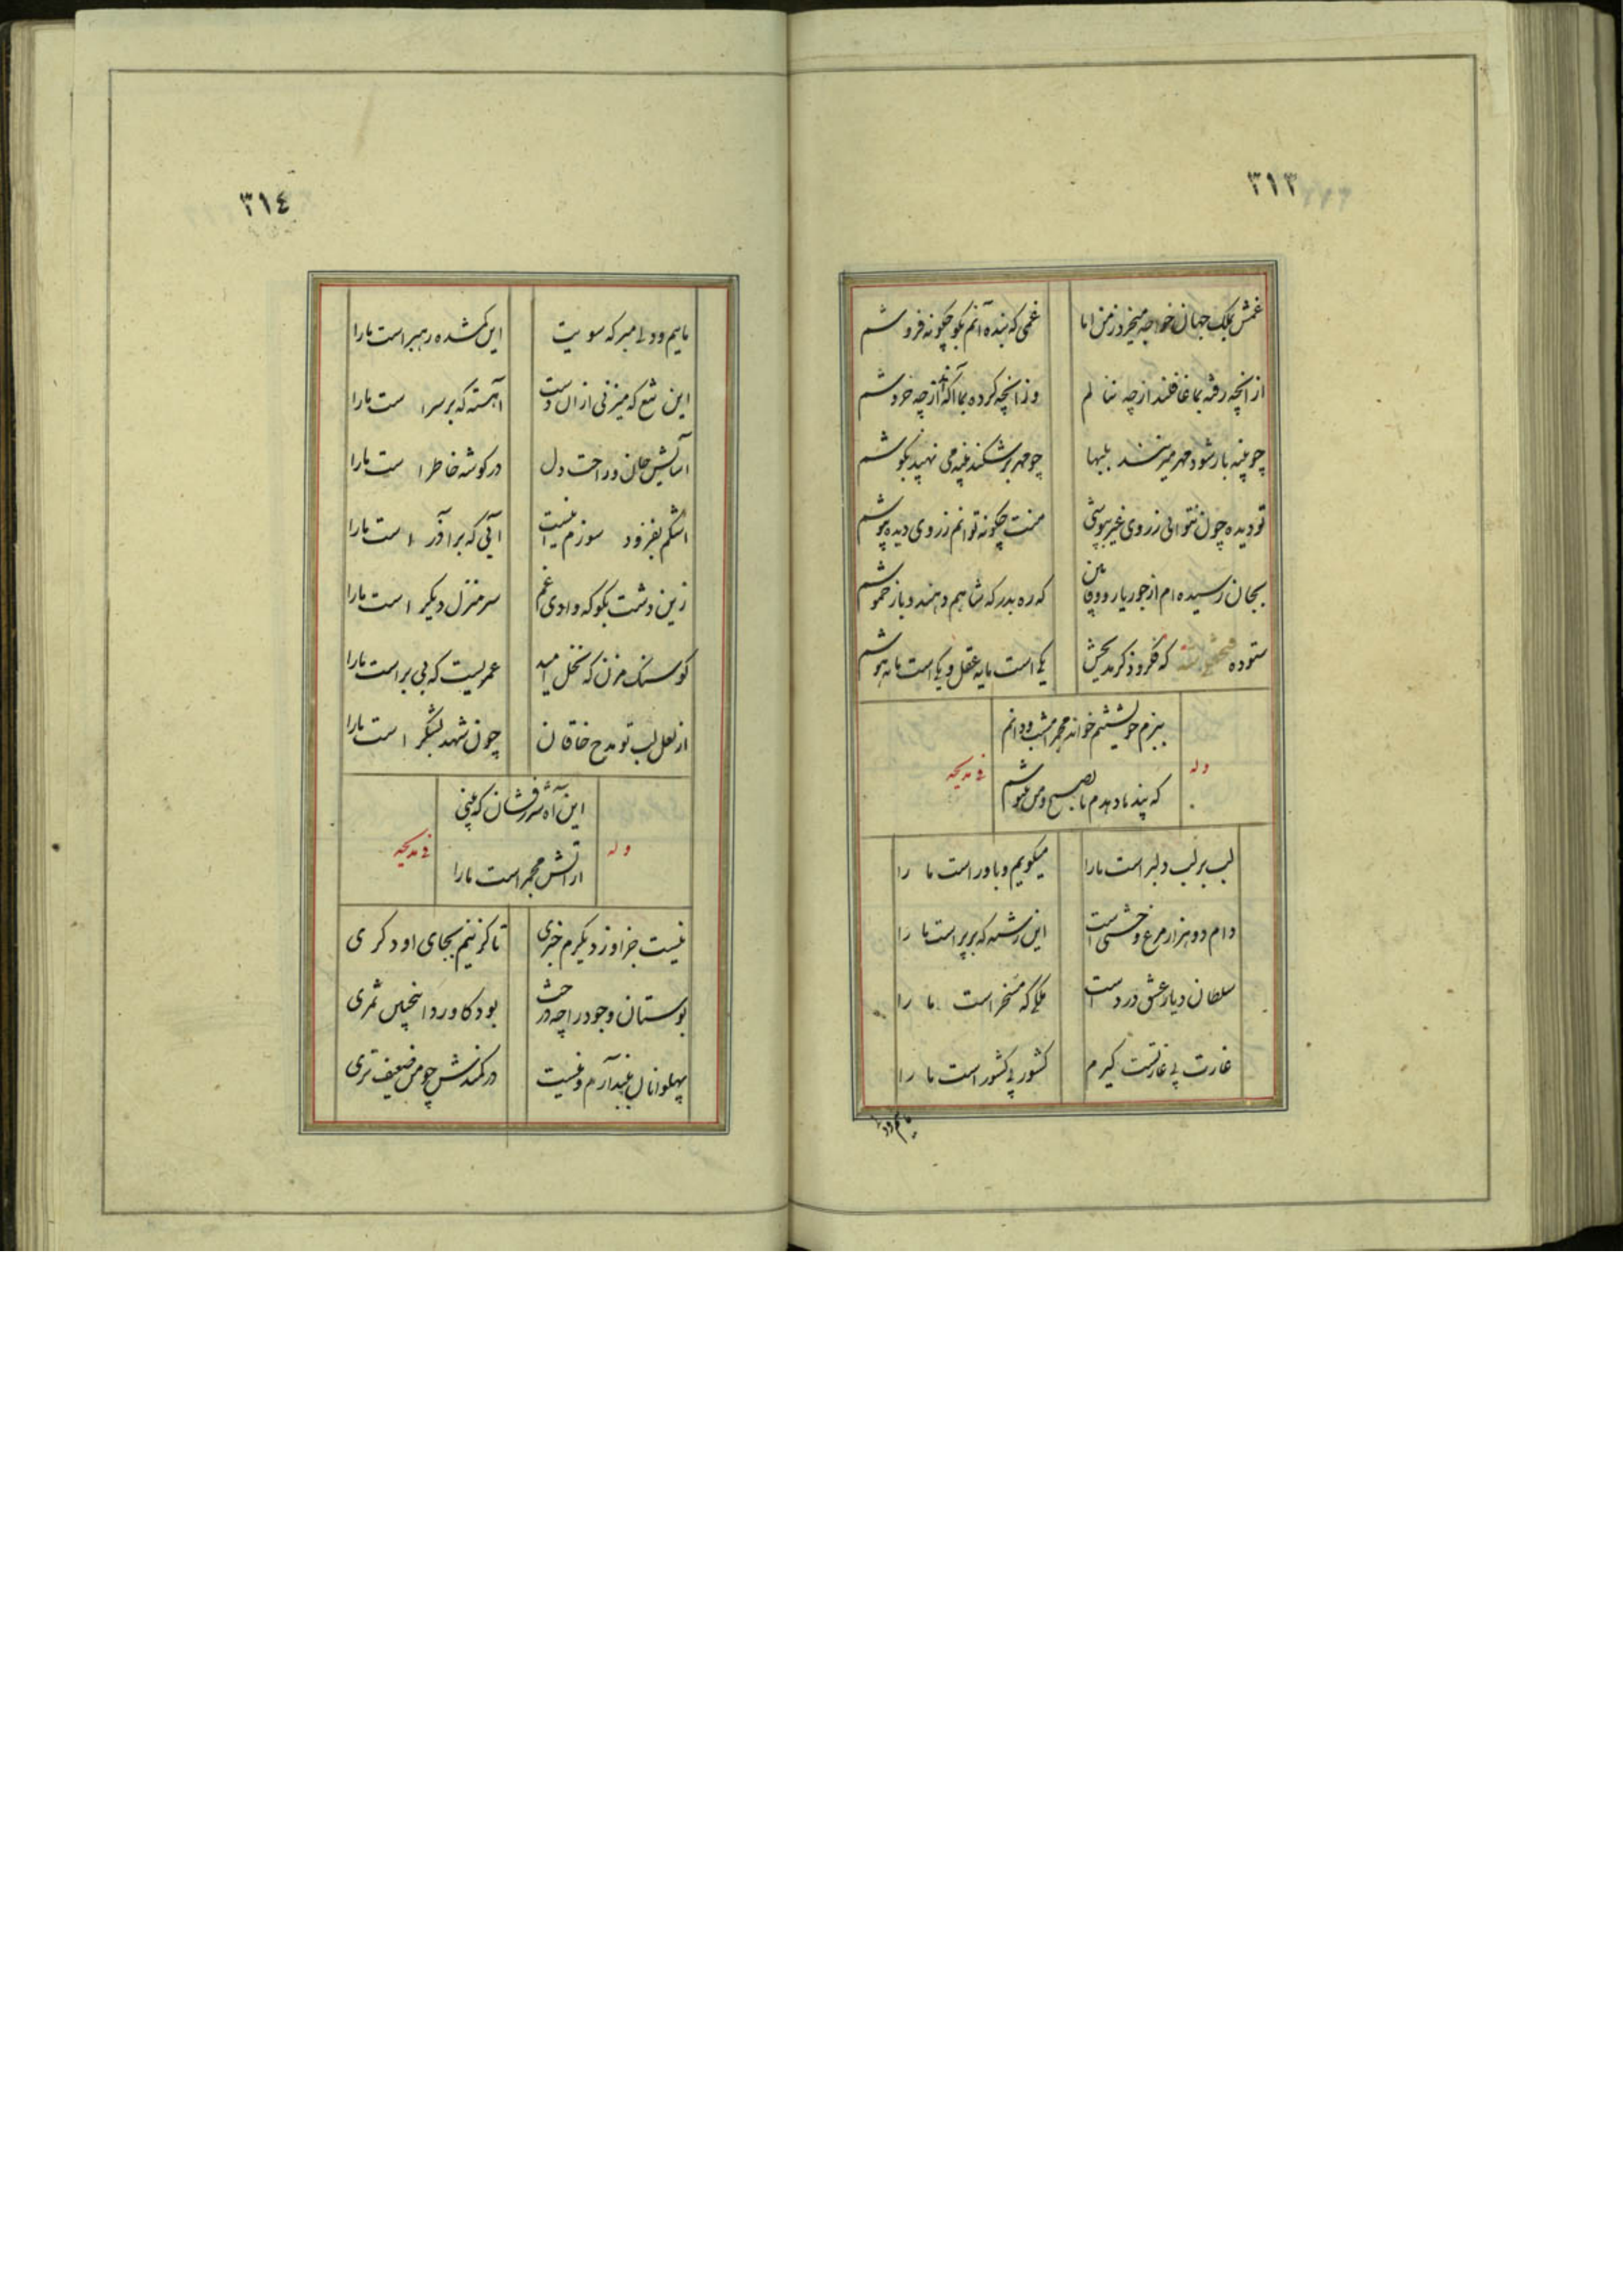 ۳۱۳
غمش بملک جهان خواجه میخرد ز من اما غمی که بنده آنم بگو چگونه فروشم
از آنچه رفته بما غافلند از چه ننالم وز آنچه کرده بما آگه از چه خروشم
چو پنبه بار شود مهر میزنند بلبها چو مهر برشکند پنبه می نهند بگوشم
تو دیده چون نتوانی ز روی غیر بپوشی منت چگونه توانم ز روی دیده بپوشم
بجان رسیده ام از جور یار و وقت من که ره بدرکه شاهم دهند و باز خموشم
ستوده فتحعلیشه که فکر و ذکر مدیحش یکی است مایه عقل و یکی است مایه هوشم
ببزم خویشتنم خواند مجمر امشب و دانم
وله
فی مدیحه
که پند باد دهدم تا بصبح و من ننیوشم
لب بر لب دلبر است ما را میگویم و باور است ما را
دام دو هزار مرغ وحشی است این رشته که بر پر است ما را
سلطان دیار عشق درد است ملکی که مسخر است ما را
غارت پی غارتست گیرم کشور پی کشور است ما را
مائیم ودلی
۳۱٤
مائیم و دلی مبر که سویت این گمشده رهبر است ما را
این تیغ که میزنی از آن دست آهسته که بر سر است ما را
آسایش جان و راحت دل در گوشه خاطر است ما را
اشکم بفزود سوزم نیست آبی که بر آذر است ما را
زین دشت بگو که وادی غم سر منزل دیگر است ما را
گو سنگ مزن که نخل امید عمریست که بی بر است ما را
از لعل لب تو مدح خاقان چون شهد بشکر است ما را
این آه شررفشان که بینی
وله
فی مدیحه
از آتش مجمر است ما را
نیست جز او ز دیگرم خبری تا گزینم بجای او دگری
بوستان وجود را چه درخت بود کاورد اینچنین ثمری
پهلوانان ببند آرم و نیست در کمندش چو من ضعیف تری